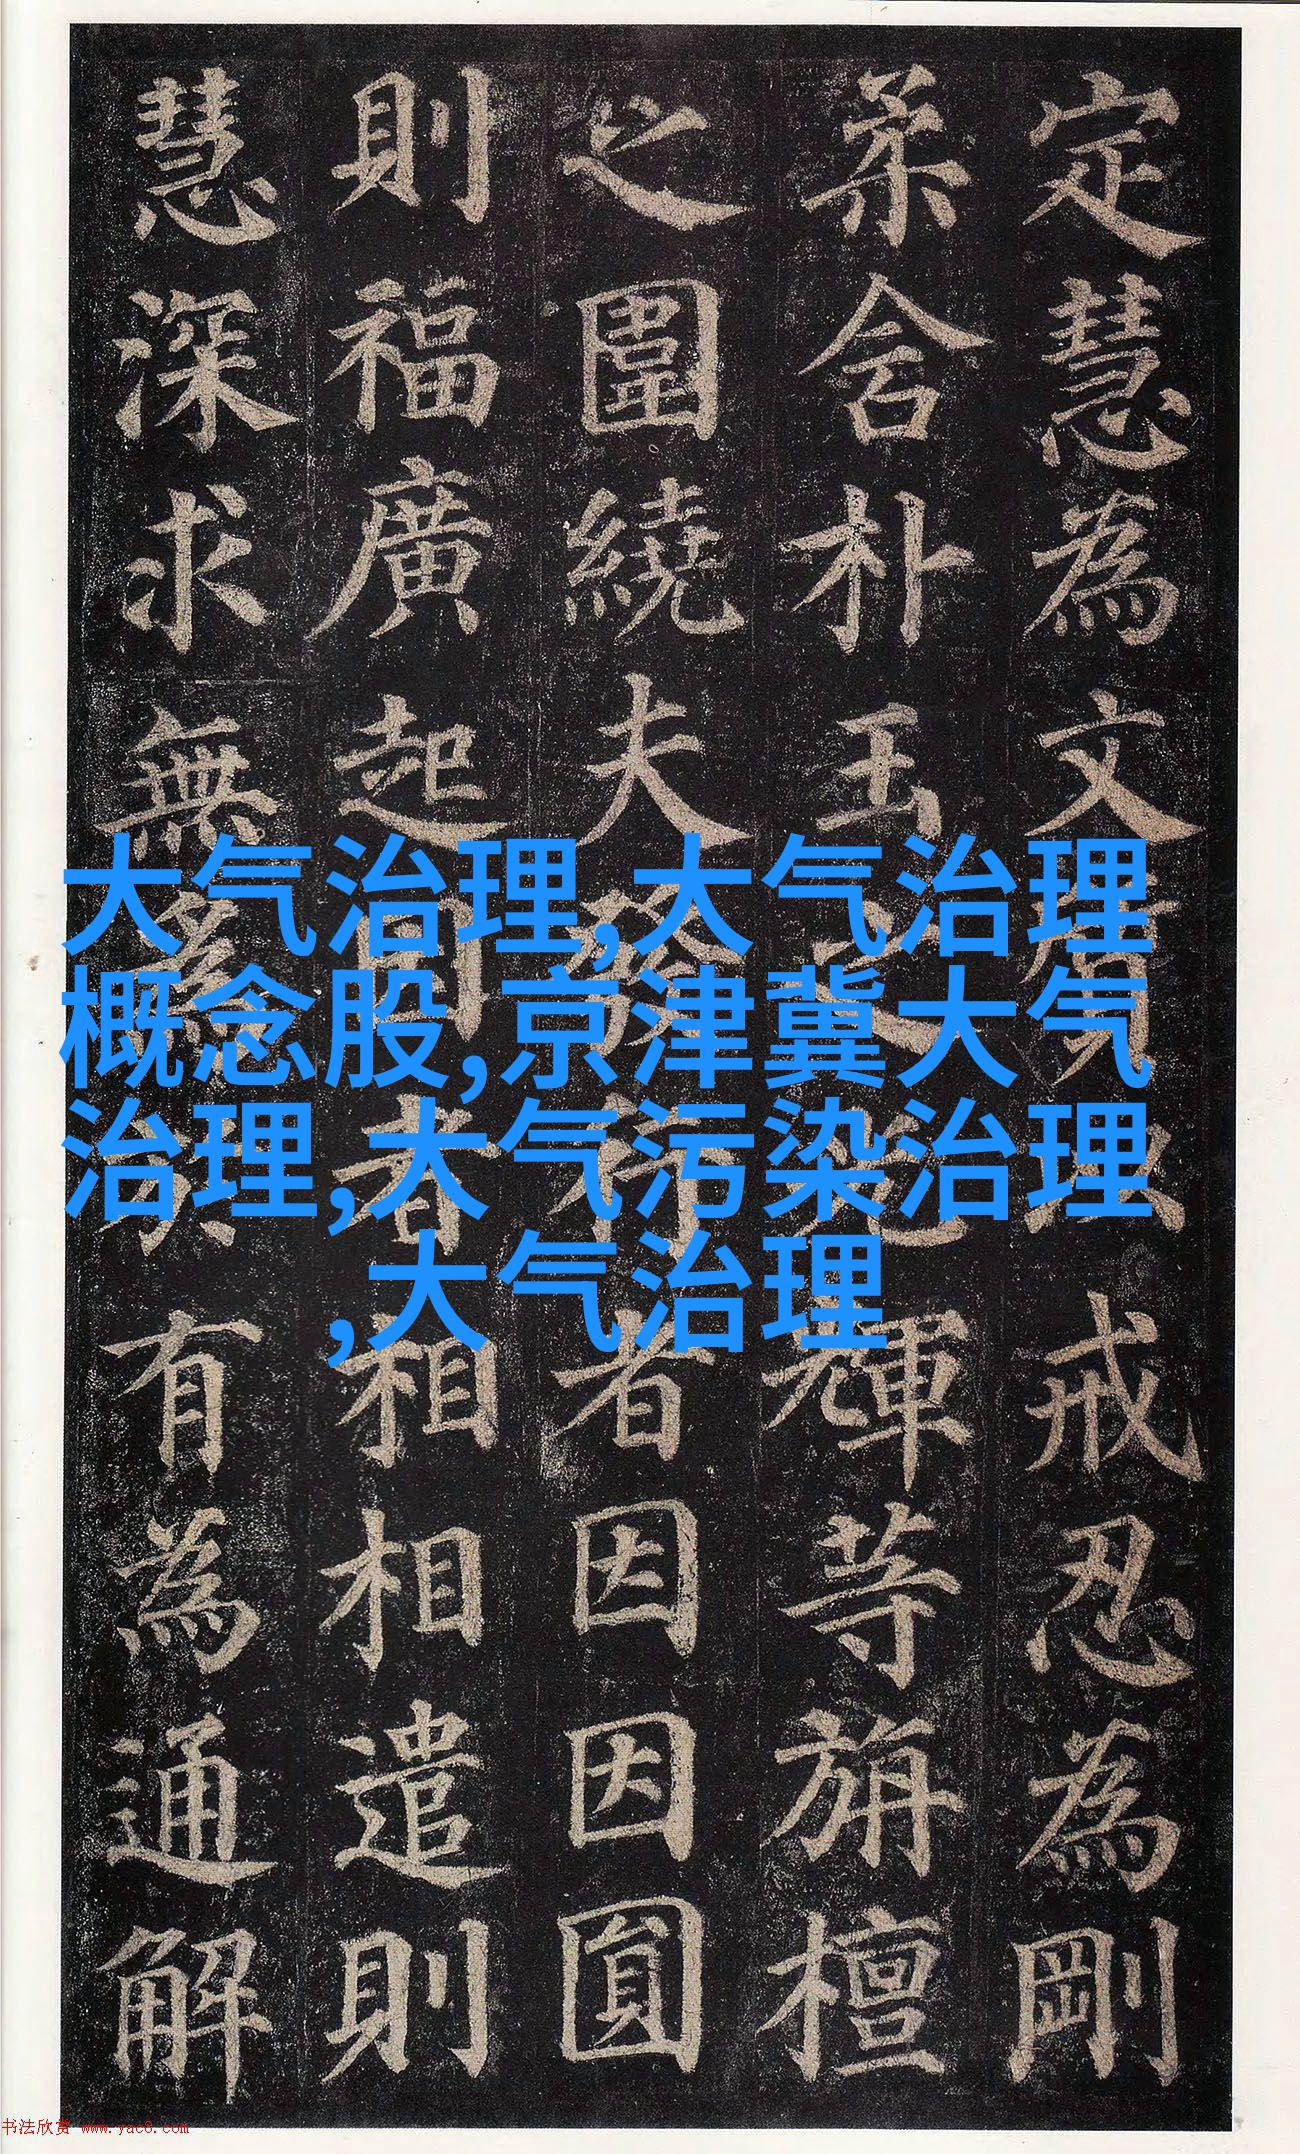 大气治理,大气治理
概念股,京津冀大气
治理,大气污染治理
,大气治理
定慧為文質以戒忍為剛
柔含朴玉之光輝等旃檀
之圍繞夫發行者因因圓
則福廣起因者相相遣則
慧深求無為於有為通解
书法欣赏 www.yac8.com